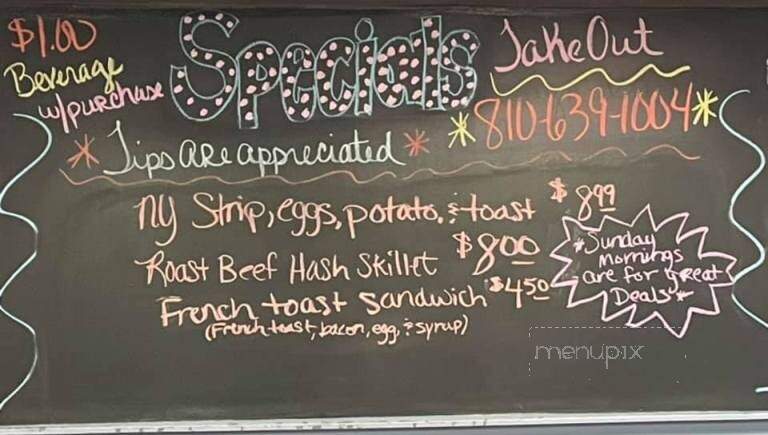 $1.00
Beverage
w/purchase
Specials
Take Out
810-639-1004
* Tips are appreciated *
NY Strip, eggs, potato, & toast $8.99
Roast Beef Hash Skillet $8.00
French toast Sandwich $4.50
(French toast, bacon, egg, & syrup)
*Sunday
Mornings
are for Great
Deals*
menupix